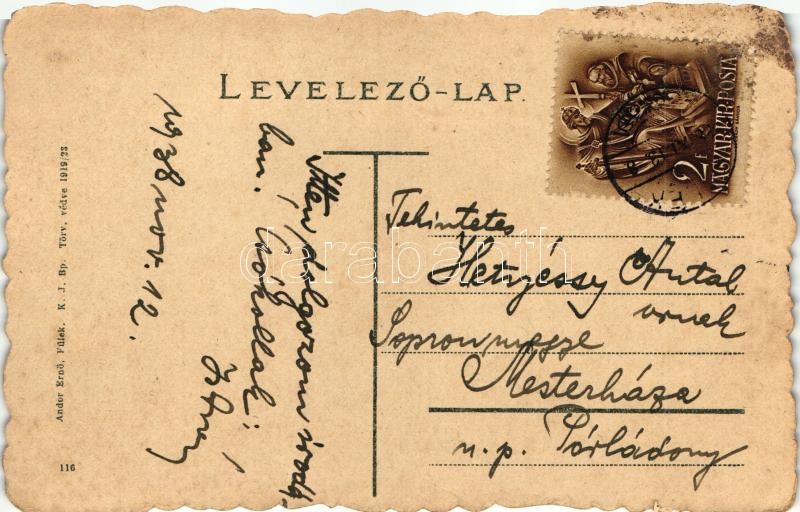 LEVELEZŐ-LAP.
2f
MAGYAR KIR. POSTA
1938 nov. 12.
Itten dolgozom irodá-
ban. Csókollak:
Tekintetes
Hetyéssy Antal
urnak
Sopronmegye
Mesterháza
u. p. Pórládony
Andor Ernő, Fülek. K. J. Bp. Törv. védve 1919/23
116
darabanth